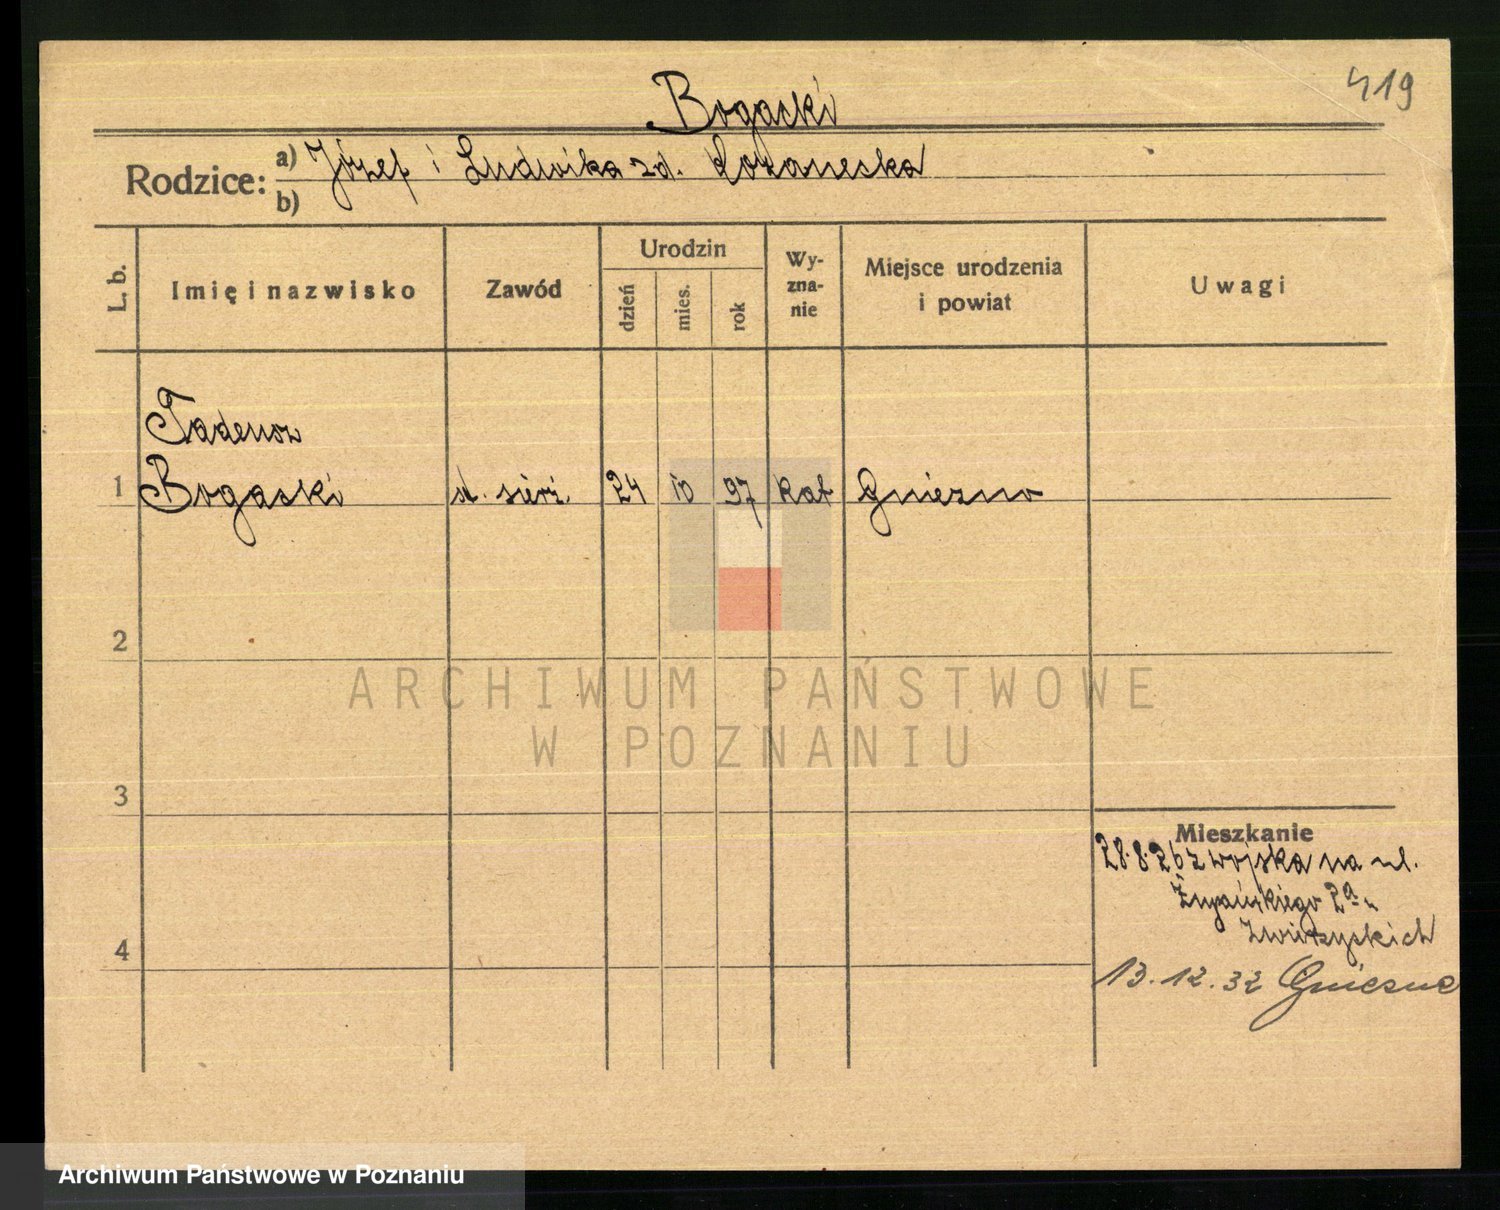 419
Bogacki
Rodzice: a) Józef i Ludwika zd.
b)
L. b. Imię i nazwisko Zawód Urodzin dzień mies. rok Wy-zna-nie Miejsce urodzenia i powiat Uwagi
Tadeusz
1 Bogacki st. sierż. 24 10 97 kat Gniezno
2
3
Mieszkanie
28.8.26 z wojska na ul.
Żupańskiego 2a u
4
13.12.32 Gniezno
ARCHIWUM PAŃSTWOWE
W POZNANIU
Archiwum Państwowe w Poznaniu